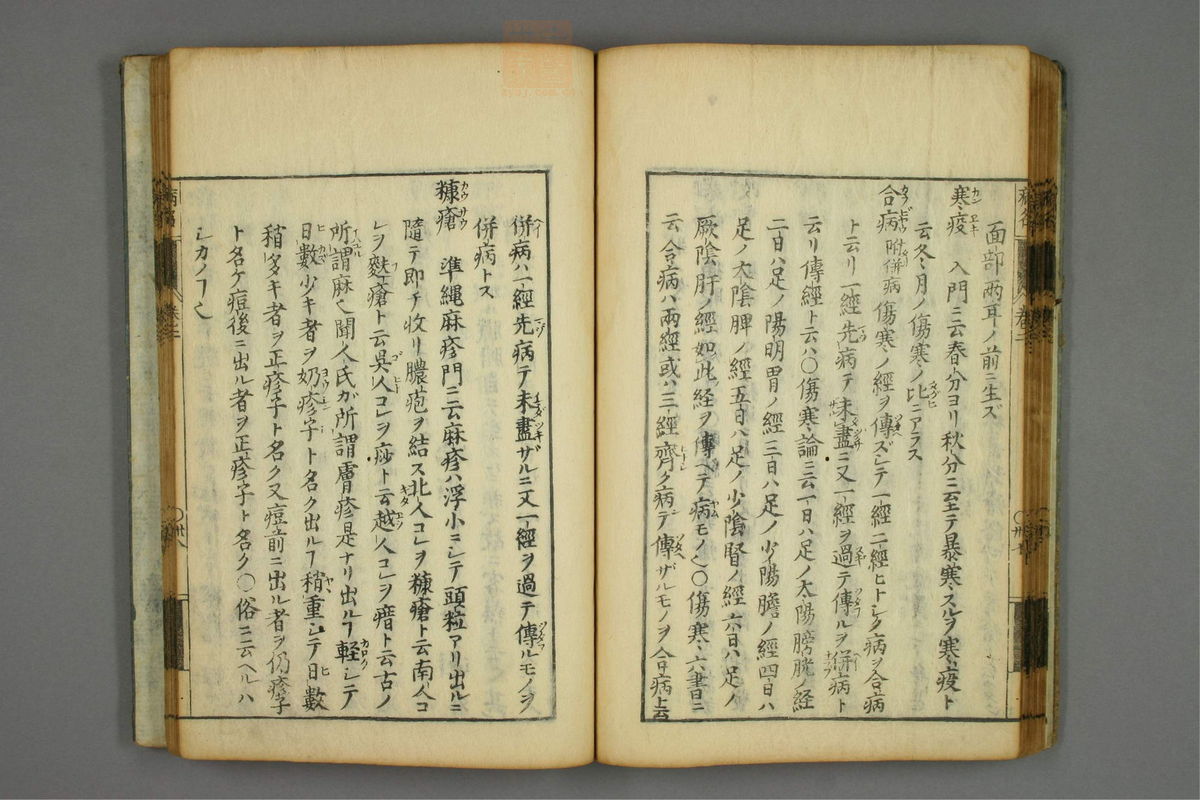 面部兩耳ノ前ニ生ズ
寒疫 入門ニ云春分ヨリ秋分ニ至テ暴寒スルヲ寒疫ト
云冬月ノ傷寒ノ比ニアラス
合病 附併病 傷寒ノ經ヲ傳ズシテ一經二經ヒトシク病ヲ合病
ト云リ一經先病テ未盡ニ又一經ヲ過テ傳ルヲ併病ト
云リ傳經ト云ハ〇傷寒論ニ云一日ハ足ノ太陽膀胱ノ経
二日ハ足ノ陽明胃ノ經三日ハ足ノ少陽膽ノ經四日ハ
足ノ太陰脾ノ經五日ハ足ノ少陰腎ノ經六日ハ足ノ
厥陰肝ノ經如此経ヲ傳ヘテ病モノ〇傷寒六書曰ニ
云合病ハ兩經或ハ三經齊ク病テ傳ザルモノヲ合病ト云
併病ハ一經先病テ未盡ザルニ又一經ヲ過テ傳ルモノヲ
併病トス
糠瘡 準縄麻疹門ニ云麻疹ハ浮小ニシテ頭粒アリ出ルニ
隨テ即チ收リ膿疱ヲ結ス北人コレヲ糠瘡ト云南人コ
レヲ麩瘡ト云呉人コレヲ痧ト云越人コレヲ瘄ト云古ノ
所謂麻也聞人氏ガ所謂膚疹是ナリ出ルヿ軽シテ
日數少キ者ヲ奶疹子ト名ク出ルヿ稍重シテ日數
稍多キ者ヲ正疹子ト名ク又痘前ニ出ル者ヲ奶疹子
ト名ケ痘後ニ出ル者ヲ正疹子ト名ク〇俗ニ云ヘルハ
シカノヿ也